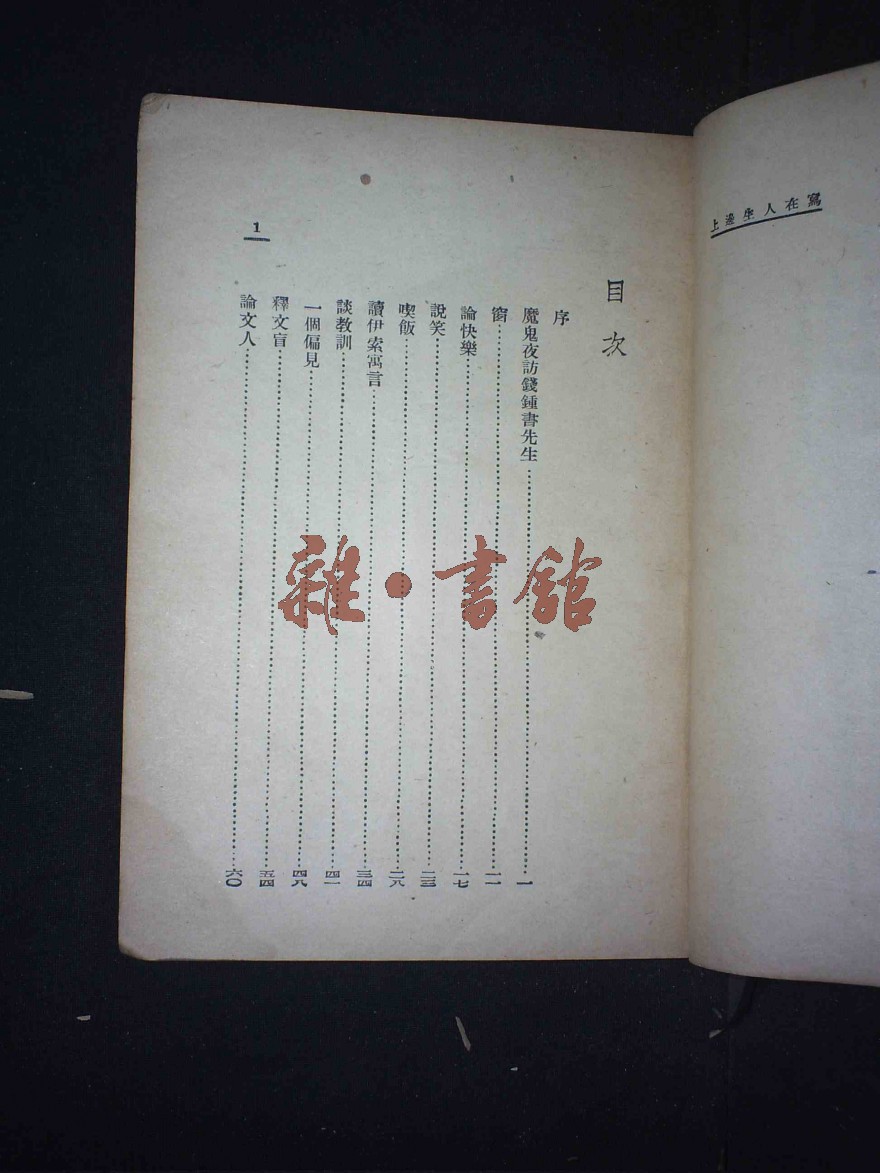 上邊生人在寫
目次
序
魔鬼夜訪錢鍾書先生 一
窗 一一
論快樂 一七
說笑 二三
喫飯 二八
讀伊索寓言 三四
談教訓 四一
一個偏見 四八
釋文盲 五四
論文人 六〇
1
雜·書館